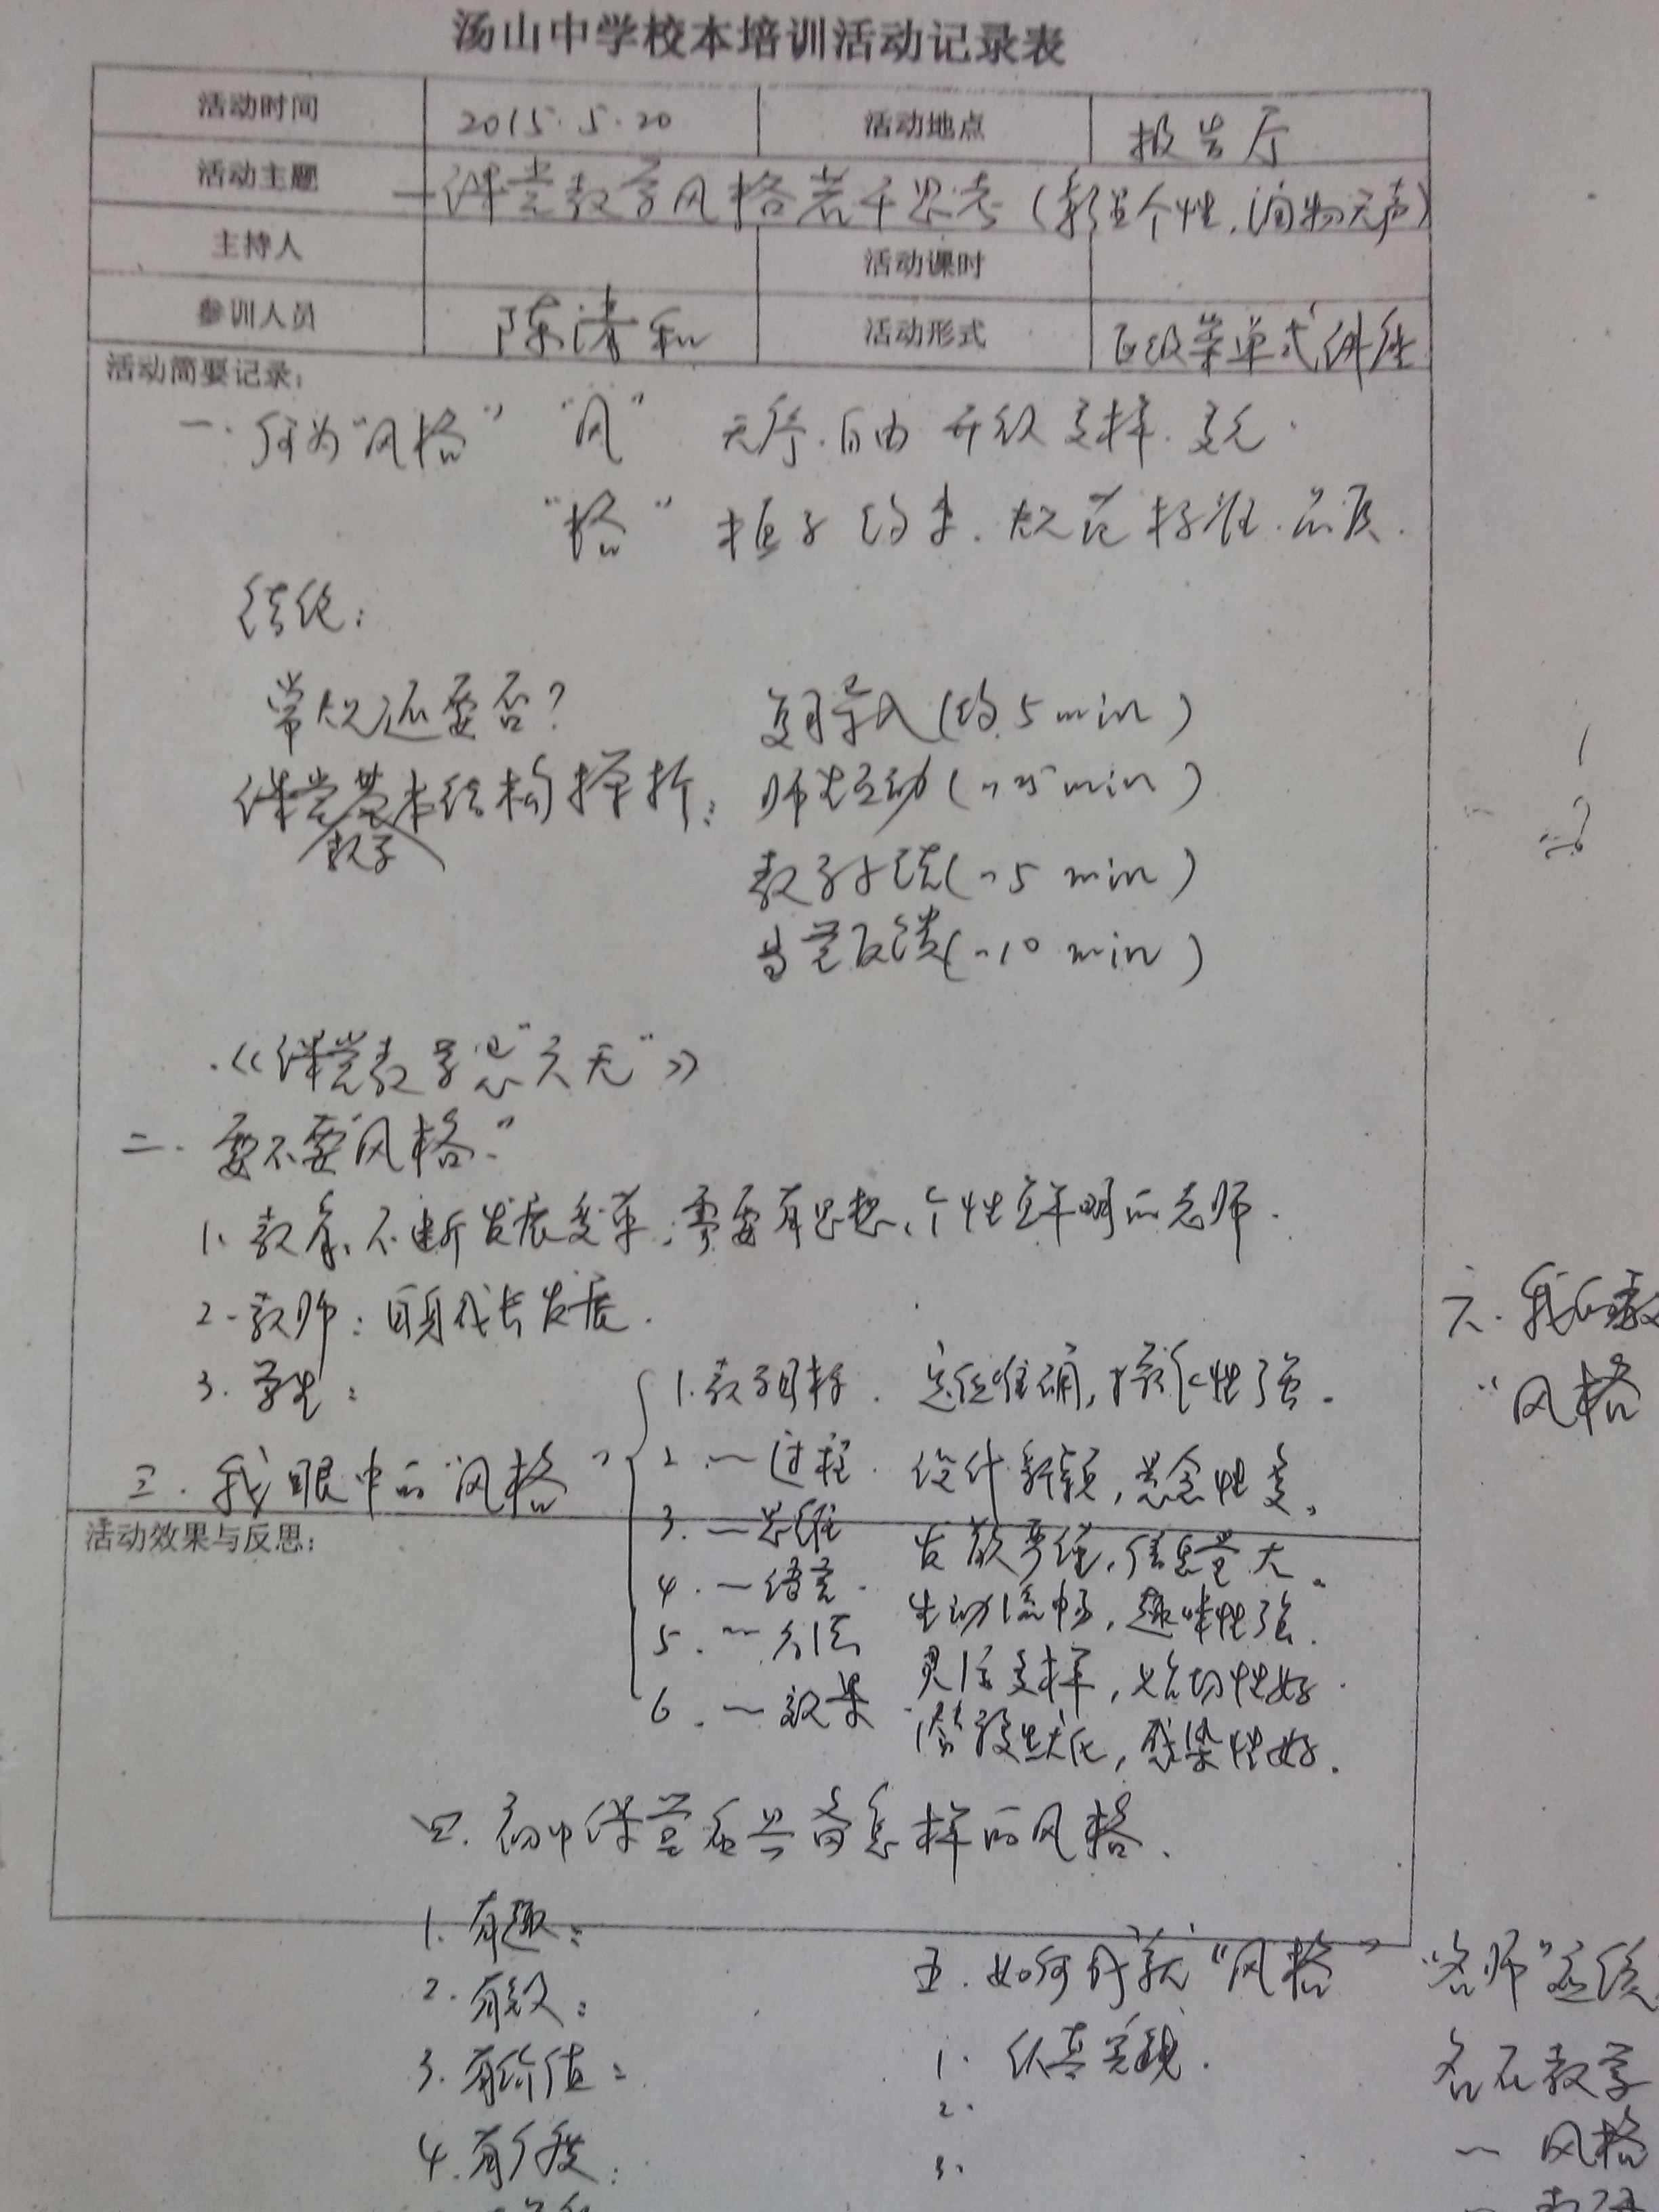 汤山中学校本培训活动记录表
活动时间 2015.5.20 活动地点 报告厅
活动主题 —课堂教学风格若干思考（彰显个性，润物无声）
主持人 活动课时
参训人员 陈清和 活动形式 区级菜单式讲座
活动简要记录：
一. 何为“风格” “风” 无序.自由 升级 多样.多元.
“格” 框子 约束.规范 标准.品质.
结论：
常规还要否？ 复习导入（约5min）
课堂教学基本结构 ： 师生互动（〃25min）
教学小结（〃5min）
当堂反馈（〃10min）
.《课堂教学忌“六无”》
二. 要不要“风格”
1. 教育：不断发展变革，需要有思想、个性鲜明的老师.
2. 教师：自身成长发展.
3. 学生：
三. 我眼中的“风格”
1. 教学目标. 定位准确，操作性强.
2. 〃过程. 设计新颖，悬念性多。
3. 〃思维 发散严谨，信息量大。
4. 〃语言. 生动流畅，趣味性强.
5. 〃方法 灵活多样，恰切性好.
6. 〃效果 潜移默化，感染性好.
活动效果与反思：
四. 初中课堂应具备怎样的风格.
1. 有趣：
2. 有效：
3. 有价值：
4. 有
五. 如何成就“风格”
1. 认真
2.
3.
六. 我的教
“风格
“名师”应该
名在教学
〃 风格